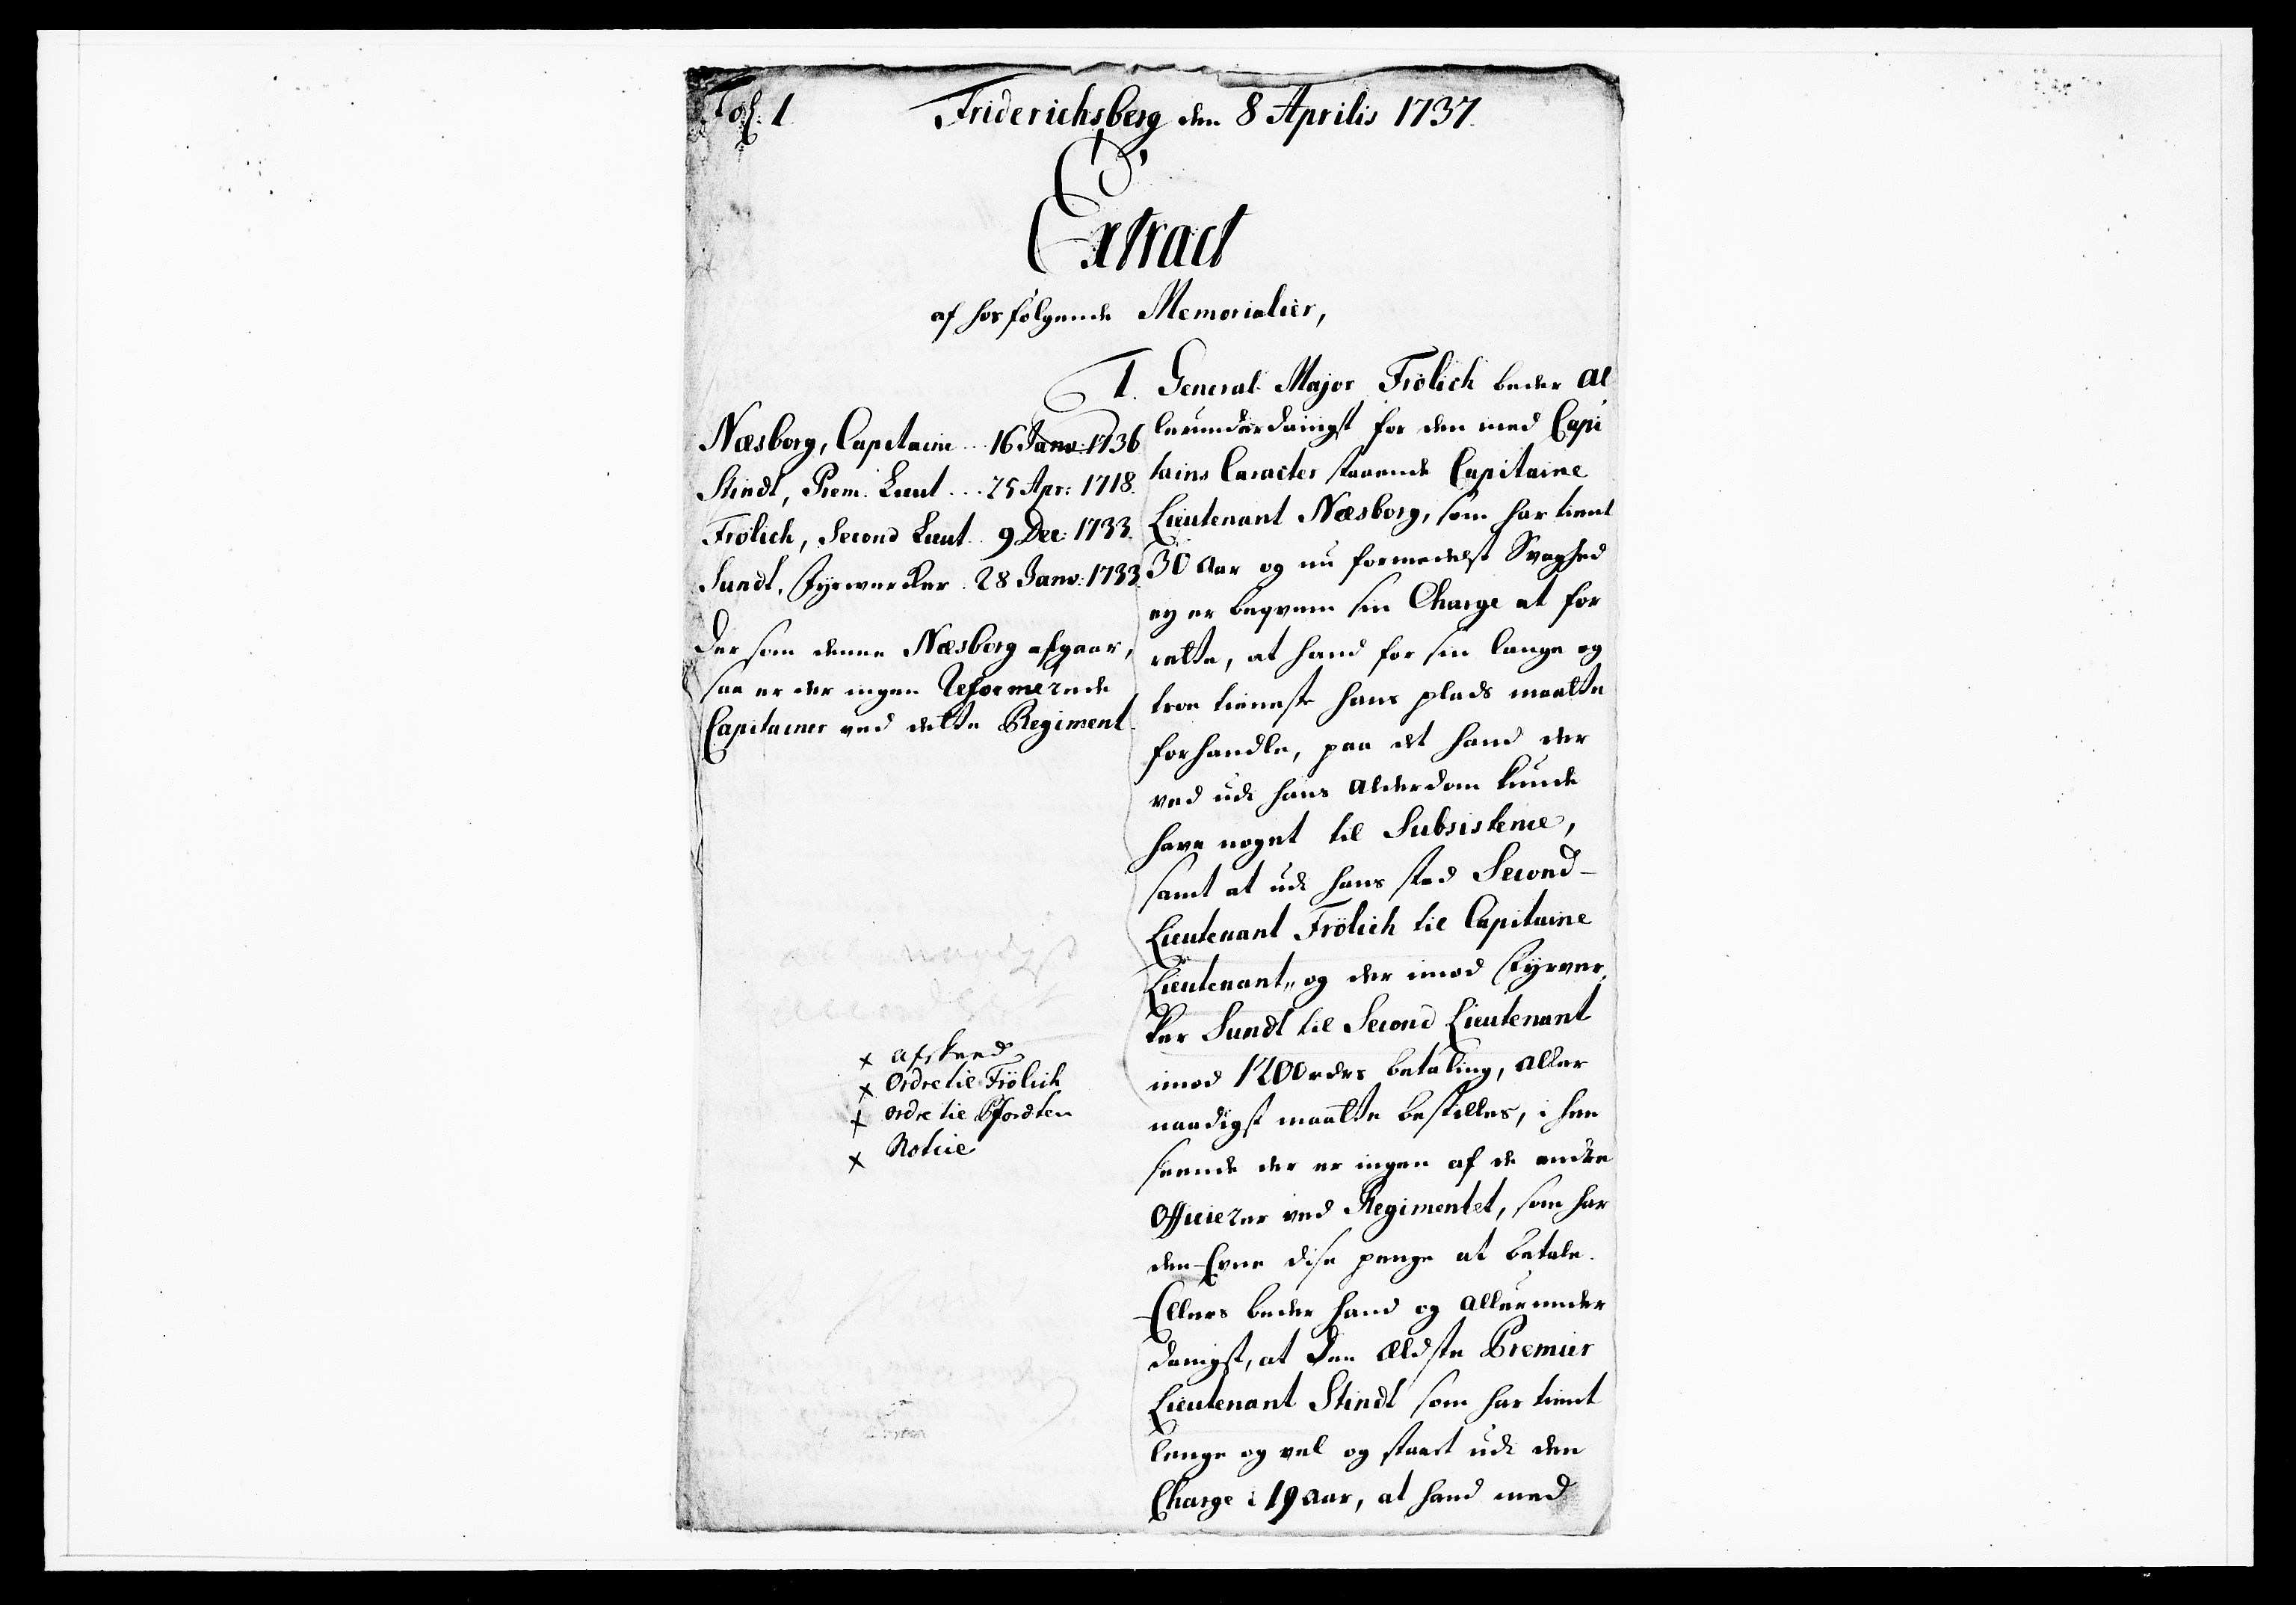 Fol. 1
Friderichsberg den 8 Aprilis 1737.
Extract
af hosfølgende Memorialier,
1. General Major Frölich beder al
lerunderdanigst for den med Capi
tains Caracter staaende Capitaine
Lieutenant Næsborg, som har tient
30 Aar og nu formedelst Svaghed
ey er beqvem sin Charge at for
rette, at hand for sin lange og
troe tieneste hans plads maatte
forhandle, paa det hand der
ved udi hans Alderdom kunde
have noget til Subsistence,
samt at udi hans sted Second-
Lieutenant Frölich til Capitaine
Lieutenant, og der imod Fyrver,
ker Sundt til Second Lieutenant
imod 1200 rdrs betaling, aller
naadigst maatte bestilles, i hen
seende der er ingen af de andre
Officierer ved Regimentet, som har
den Evne dise penge at betale.
Ellers beder hand og allerunder
danigst, at den Eldste Premier
Lieutenant Stindt som har tient
lenge og vel og staaet udi den
Charge i 19 Aar, at hand med
Næsborg, Capitaine .. 16 Janv: 1736
Stindt, Prem. Lieut ... 25 Apr: 1718.
Frölich, Second Lieut .. 9 Dec: 1733.
Sundt, Fyrwerker . 28 Janv: 1733.
Der som denne Næsborg afgaar,
saa er der ingen Reformerede
Capitainer ved dette Regiment.
x Afskeed
x Ordre til Frölich
x ordre til Pfordten
x Notice